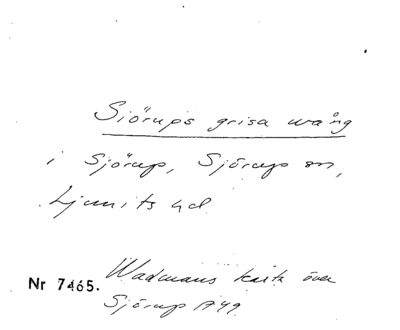 Sjörups grisa wång
i Sjörup, Sjörup sn,
Ljunits hd
Wadmans karta över
Nr 7465.
Sjörup 1749